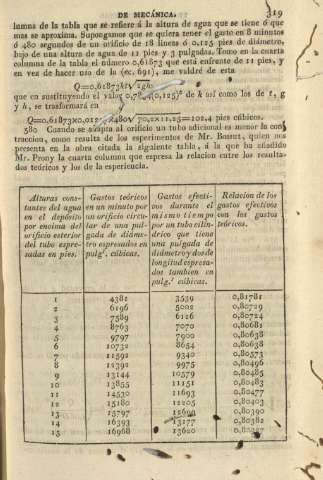 DE MECÁNICA. 319
lumna de la tabla que se refiere á la altura de agua que se tiene ó que
mas se aproxima. Supongamos que se quiera tener el gasto en 8 minutos
ó 480 segundos de un orificio de 18 líneas ó 0,125 pies de diámetro,
bajo de una altura de agua de 11 pies y 3 pulgadas. Tomo en la cuarta
columna de la tabla el número 0,61873 que está enfrente de 11 pies, y
en vez de hacer uso de la (ec. 691), me valdré de esta
que en sustituyendo el valor de k así como los de t, g
y h, se trasformará en
pies cúbicos.
580 Cuando se adapta al orificio un tubo adicional es menor la con-
traccion, como resulta de los esperimentos de Mr. Bossut, quien nos
presenta en la obra citada la siguiente tabla, á la que ha añadido
Mr. Prony la cuarta columna que espresa la relacion entre los resulta-
dos teóricos y los de la esperiencia.
Alturas cons-
tantes del agua
en el depósito
por encima del
orificio esterior
del tubo espre-
sadas en pies.
Gastos teóricos
en un minuto por
un orificio circu-
lar de una pul-
gada de diáme-
tro espresados en
pulg.s cúbicas.
Gastos efecti-
vos durante el
mismo tiempo
por un tubo cilín-
drico que tiene
una pulgada de
diámetro y dos de
longitud espresa-
dos tambien en
pulg.s cúbicas.
Relacion de los
gastos efectivos
con los gastos
teóricos.
1 4381 3539 0,81781
2 6196 5002 0,80729
3 7589 6126 0,80724
4 8763 7070 0,80681
5 9797 7900 0,80638
6 10732 8654 0,80638
7 11592 9340 0,80573
8 12392 9975 0,80496
9 13144 10579 0,80485
10 13855 11151 0,80483
11 14530 11693 0,80477
12 15180 12205 0,80403
13 15797 12699 0,80390
14 16393 13177 0,80382
15 16968 13620